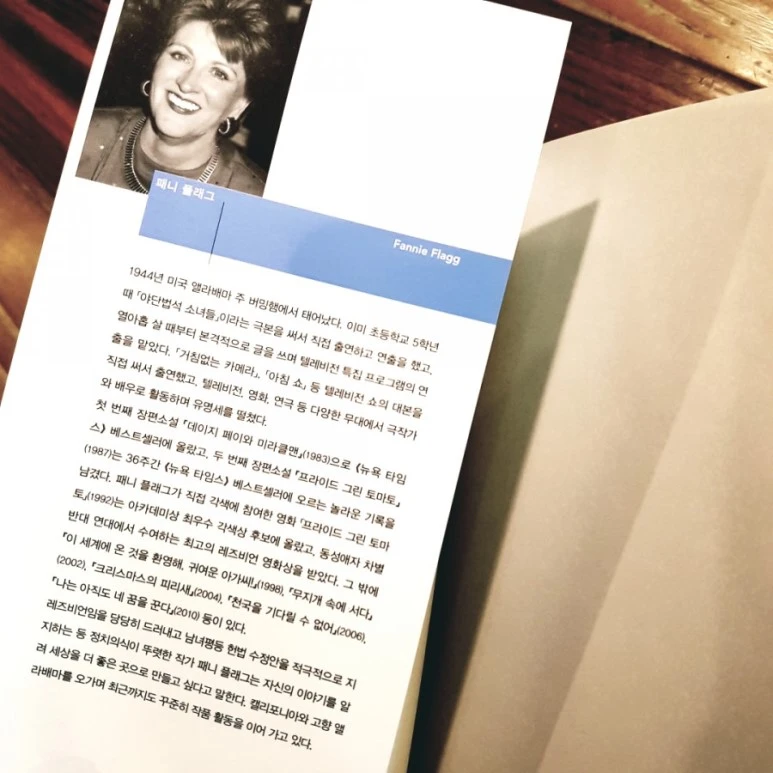 패니 플래그
Fannie Flagg
1944년 미국 앨라배마 주 버밍햄에서 태어났다. 이미 초등학교 5학년
때 「야단법석 소녀들」이라는 극본을 써서 직접 출연하고 연출을 했고,
열아홉 살 때부터 본격적으로 글을 쓰며 텔레비전 특집 프로그램의 연
출을 맡았다. 「거침없는 카메라」, 「아침 쇼」 등 텔레비전 쇼의 대본을
직접 써서 출연했고, 텔레비전, 영화, 연극 등 다양한 무대에서 극작가
와 배우로 활동하며 유명세를 떨쳤다.
첫 번째 장편소설 『데이지 페이와 미라클맨』(1983)으로 《뉴욕 타임
스》 베스트셀러에 올랐고, 두 번째 장편소설 『프라이드 그린 토마토』
(1987)는 36주간 《뉴욕 타임스》 베스트셀러에 오르는 놀라운 기록을
남겼다. 패니 플래그가 직접 각색에 참여한 영화 「프라이드 그린 토마
토」(1992)는 아카데미상 최우수 각색상 후보에 올랐고, 동성애자 차별
반대 연대에서 수여하는 최고의 레즈비언 영화상을 받았다. 그 밖에
『이 세계에 온 것을 환영해, 귀여운 아가씨!』(1998), 『무지개 속에 서다』
(2002), 『크리스마스의 피리새』(2004), 『천국을 기다릴 수 없어』(2006),
『나는 아직도 네 꿈을 꾼다』(2010) 등이 있다.
레즈비언임을 당당히 드러내고 남녀평등 헌법 수정안을 적극적으로 지
지하는 등 정치의식이 뚜렷한 작가 패니 플래그는 자신의 이야기를 알
려 세상을 더 좋은 곳으로 만들고 싶다고 말한다. 캘리포니아와 고향 앨
라배마를 오가며 최근까지도 꾸준히 작품 활동을 이어 가고 있다.